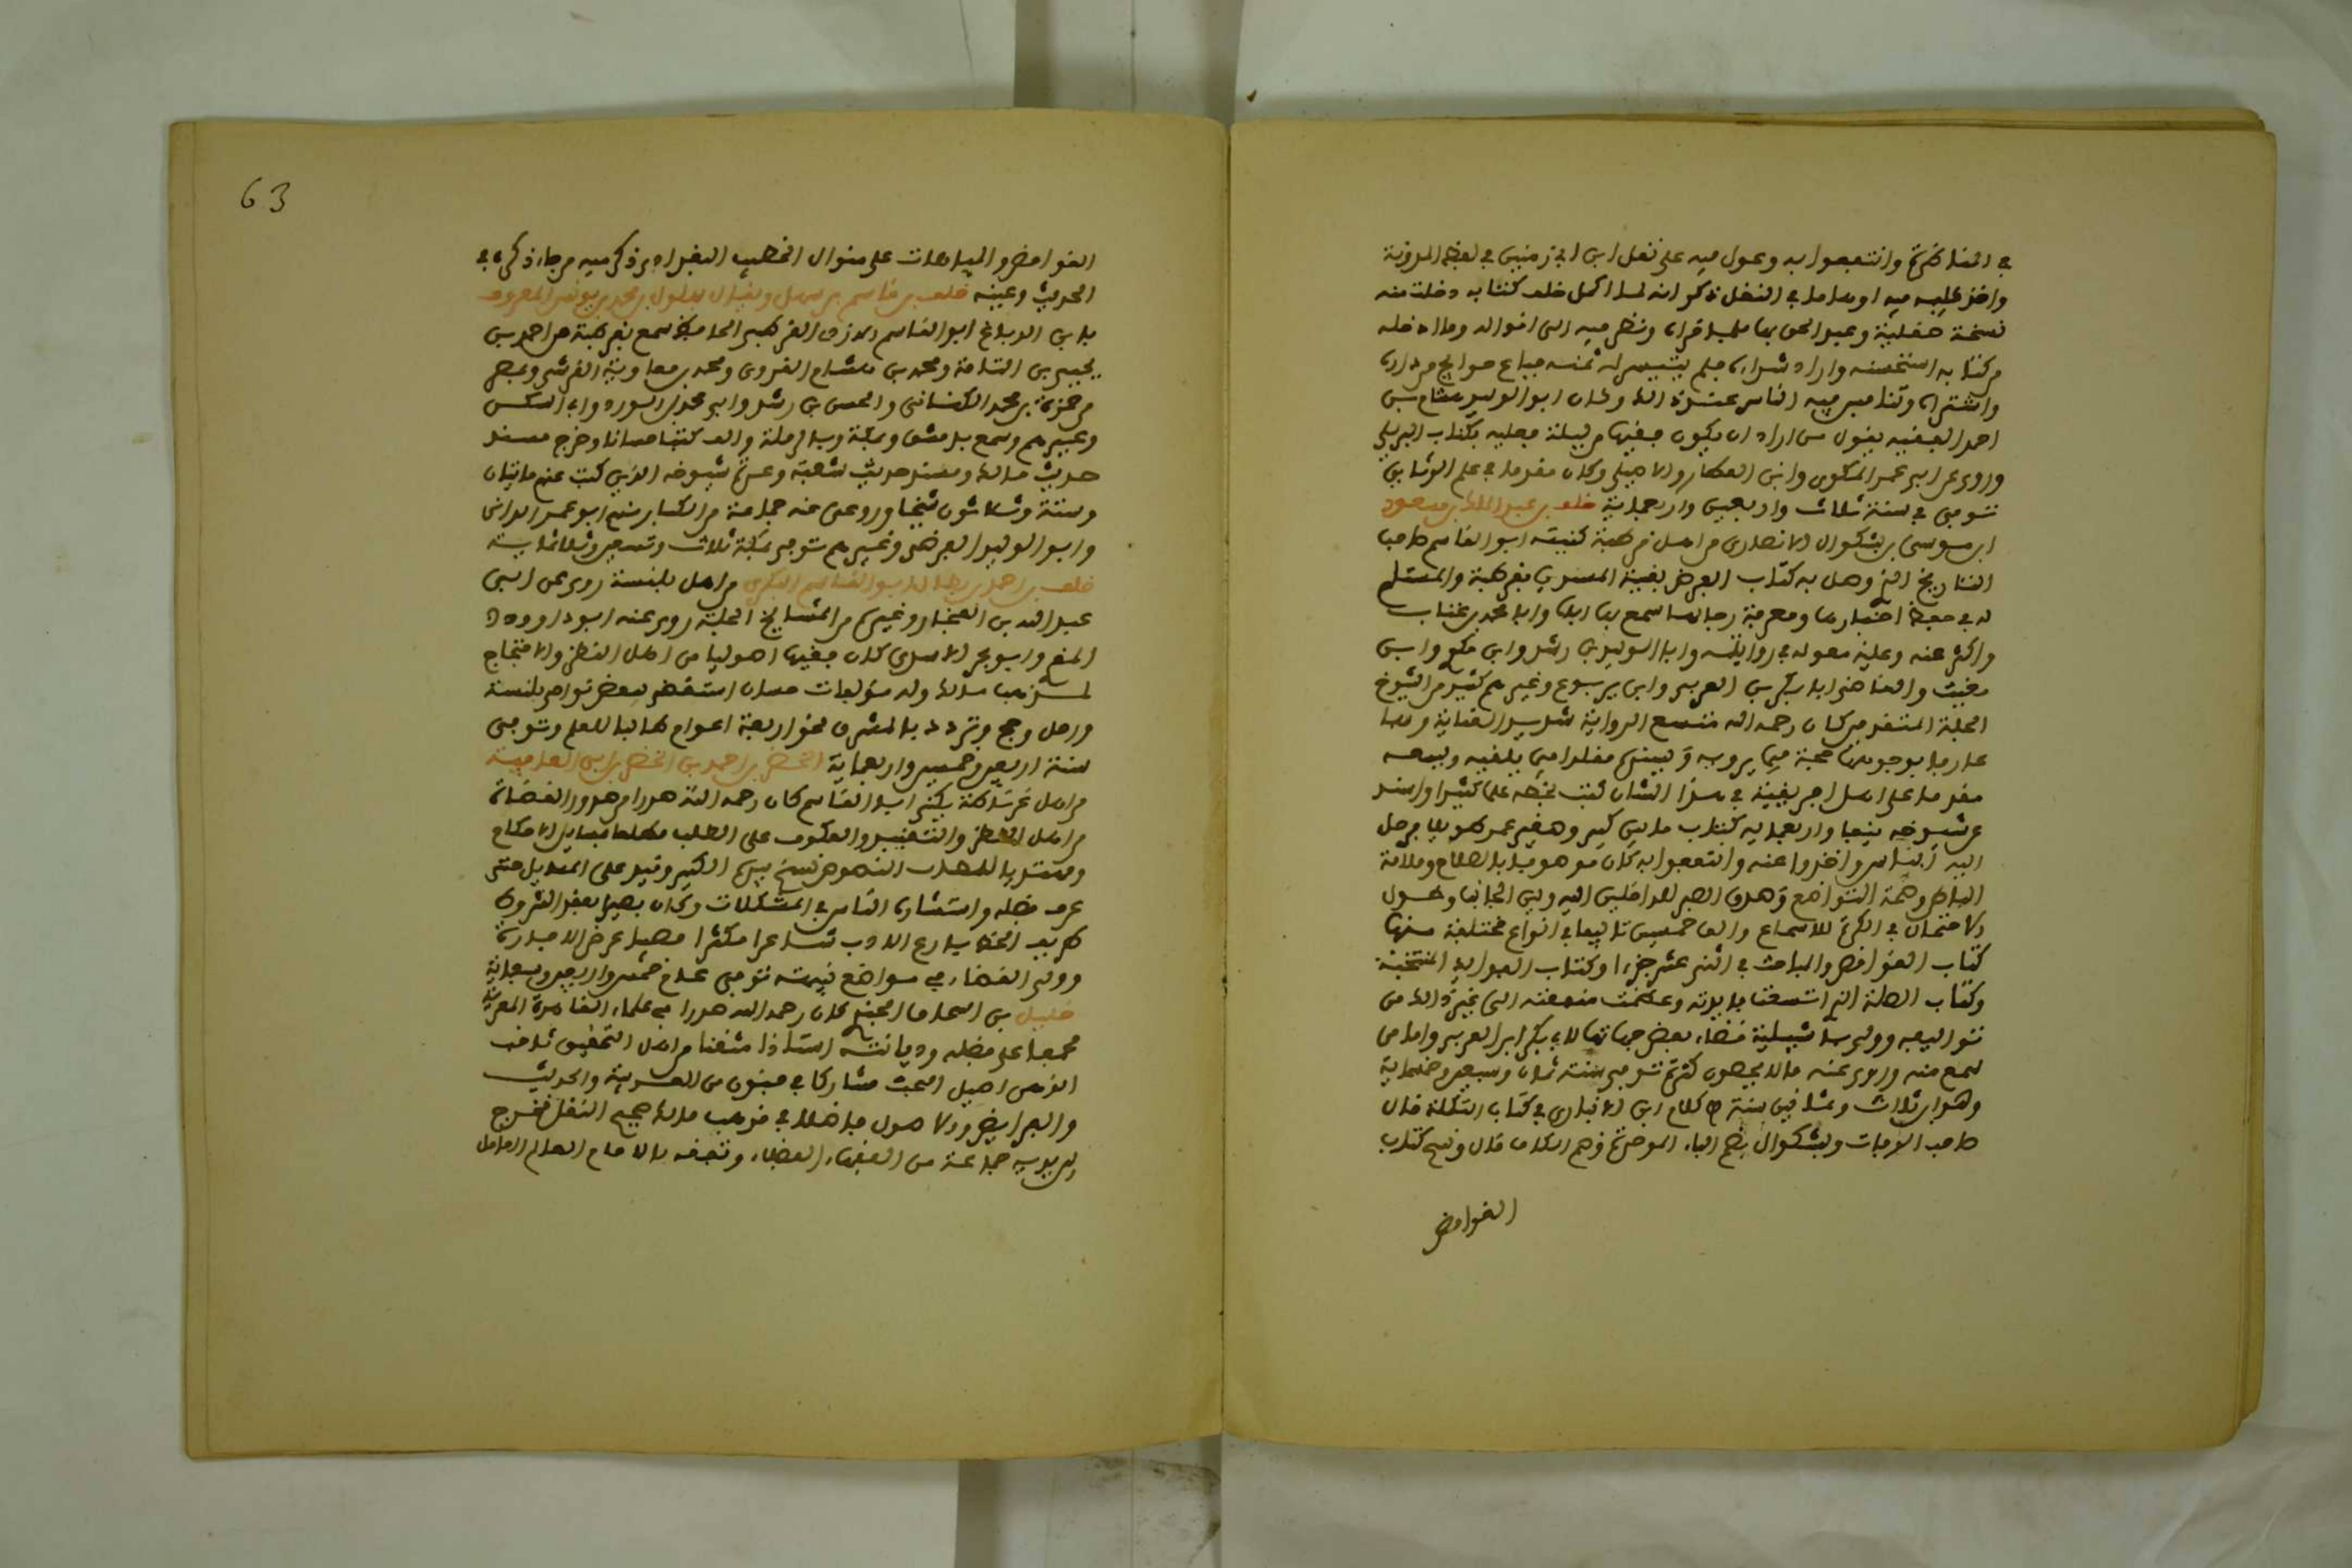 في المناظرة وانتفعوا به وعول فيه على نقل ابن ابي زمنين في لفظ المدونة
واخذ عليه فيه اوهاما في النقل ذكر انه لما اكمل خلف كتابه دخلت منه
نسخة صقلية وعبد الحق بها فلما قراه ونظر فيه الى اقواله وما ادخله
من كتابه استحسنه واراد شراءه فلم يتيسر له ثمنه فباع حوايج من داره
واشتراه وتنافس فيه الناس عند ذلك وكان ابو الوليد هشام بن
احمد الفقيه يقول من اراد ان يكون فقيها من ليلة فعليه بكتاب البريلي
وروى عن ابي عمر المكوي وابن العطار والاصيلي وكان مقدما في علم الوثايق
توفي في سنة ثلاث واربعين واربعماية خلف بن عبد الملك بن مسعود
ابن موسى بن بشكوال الانصاري من اهل قرطبة كنيته ابو القاسم صاحب
التاريخ الذي وصل به كتاب ابن الفرضي بقية المسندين بقرطبة والمسلم
له في حفظ اخبارها ومعرفة رجالها سمع بها اباه وابا محمد بن عتاب
واكثر عنه وعليه معوله في روايته وابا الوليد بن رشد وابن مكي وابن
مغيث والقاضي ابا بكر بن العربي وابن يربوع وغيرهم كثير من الشيوخ
الجلة المتقدمين كان رحمه الله متسع الرواية شديد العناية بها
عارفا بوجوهها حجة فيما يرويه ويسنده مقلدا فيما يلقيه ويسمعه
مقدما على اهل افريقية في هذا الشان كتب بخطه علما كثيرا واسند
عن شيوخه نيفا واربعماية كتاب ما بين كبير وصغير عمر طويلا فرحل
اليه الناس واخذوا عنه وانتفعوا به كان موصوفا بالصلاح وسلامة
الباطن وصحة التواضع وصدق الصبر للداخلين اليه ولين الجانب وطول
الاحتمال في الكبرة للاسماع والف خمسين تاليفا في انواع مختلفة منها
كتاب الغوامض والمباحث في اثني عشر جزءا وكتاب الفوايد المنتخبة
وكتاب الصلة التي اتسعت فايدته وعظمت منفعته الى غير ذلك من
تواليفه وولي باشبيلية قضاء بعض جهاتها لابي بكر ابن العربي واما من
سمع منه وروى عنه فلا يحصون كثرة توفي سنة ثمان وسبعين وخمسماية
وهو ابن ثلاث وثمانين سنة من كلام ابن الابار في كتاب التكملة قال
صاحب الوفيات وبشكوال بفتح الباء الموحدة وضم الكاف قال وفي كتاب
الغوامض
63
الغوامض والمبهمات على منوال الخطيب البغدادي ذكر فيه من جاء ذكره في
الحديث وعينه خلف بن قاسم بن سهل ويقال سهلول بن محمد بن يونس المعروف
بابن الدباغ ابو القاسم الازدي القرطبي الحافظ سمع بقرطبة من احمد بن
يحيى بن الشامة ومحمد بن هشام القروي ومحمد بن معاوية القرشي وبمصر
من حمزة بن محمد الكناني والحسن بن رشيق وابي محمد بن الورد وابن السكن
وغيرهم وسمع بدمشق وبمكة وبالرملة والف كتبا حسانا وخرج مسند
حديث مالك ومسند حديث شعبة وعدة شيوخه الذين كتب عنهم مايتان
وستة وثلاثون شيخا وروى عنه جماعة من الكبار منهم ابو عمر الداني
وابو الوليد الفرضي وغيرهم توفي سنة ثلاث وتسعين وثلاثماية
خلف بن احمد بن بطال ابو القاسم البكري من اهل بلنسية روى عن ابي
عبد الله بن الفخار وغيره من المشايخ الجلة روى عنه ابو داوود
المقري وابو بحر الاسدي كان فقيها اصوليا من اهل النظر والاحتجاج
لمذهب مالك وله مؤلفات حسان استقضي ببعض نواحي بلنسية
ورحل وحج وتردد بالمشرق نحو اربعة اعوام طالبا للعلم وتوفي
سنة اربع وخمسين واربعماية الخضر بن احمد بن الخضر بن ابي العافية
من اهل غرناطة يكنى ابا القاسم كان رحمه الله صدرا من صدور القضاة
من اهل النظر والتقييد والعكوف على الطلب مضطلعا بمسايل الاحكام
ومهتديا لمظنات النصوص نسخ بيده الكثير وقيد على المسايل حتى
عرف فضله واستشاره الناس في المشكلات وكان بصيرا بعقد الشروط
ظريف الخط بارع الادب شاعرا مكثرا مصيبا غرض الاجادة
وولي القضاء في مواضع نبيهة توفي عام خمس واربعين وسبعماية
خليل بن اسحاق الجندي كان رحمه الله صدرا في علماء القاهرة المعزية
مجمعا على فضله وديانته استاذا متقنا من اهل التحقيق ثاقب
الذهن اصيل البحث مشاركا في فنون من العربية والحديث
والفرايض والاصول فاضلا في مذهب مالك صحيح النقل تخرج
بين يديه جماعة من الفقهاء الفضلاء وتفقه بالامام العالم العامل